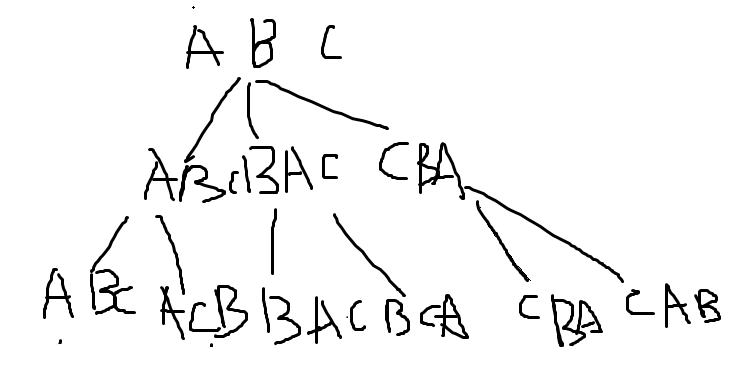 A B C
ABC BAC CBA
ABC ACB BAC BCA CBA CAB